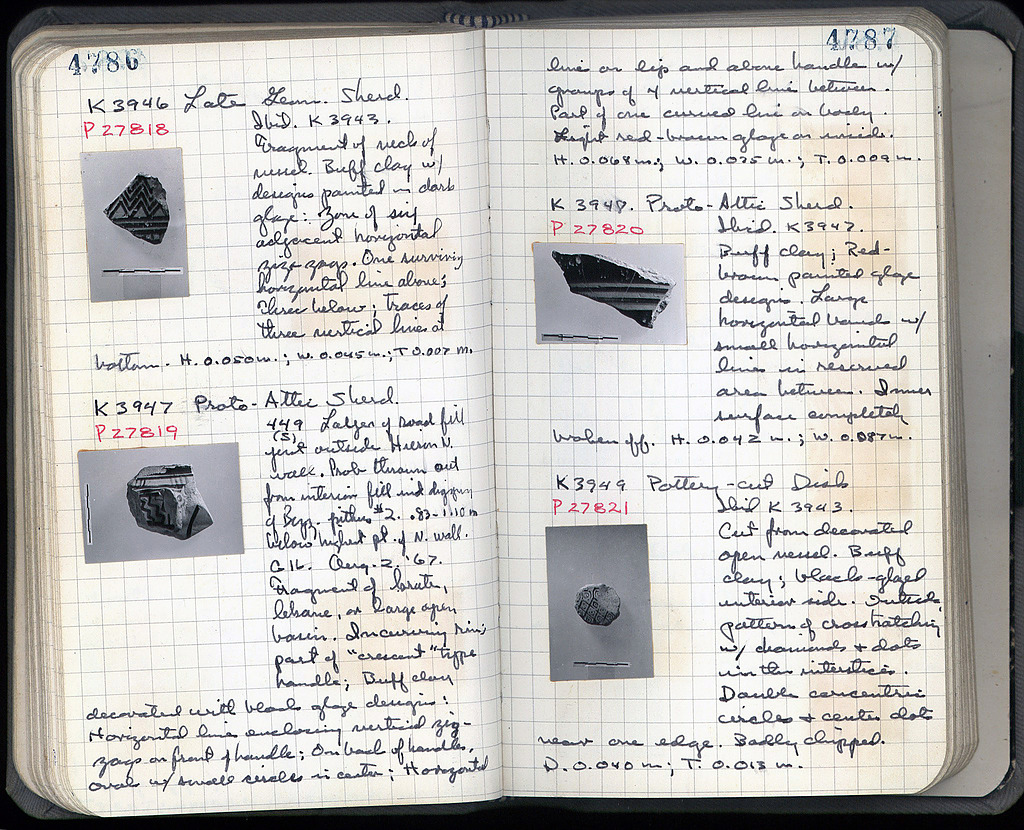 4786
K 3946 Late Geom. Sherd.
P 27818
Ibid. K 3943.
Fragment of neck of
vessel. Buff clay w/
designs painted in dark
glaze: Zone of six
adjacent horizontal
zig-zags. One surviving
horizontal line above;
three below; traces of
three vertical lines at
bottom. H. 0.050 m.; W. 0.045 m.; T 0.007 m.
K 3947 Proto-Attic Sherd.
P 27819
449 Layer of road fill
(S)
just outside Hieron N.
wall. Prob. thrown out
from interior fill in digging
of Byz. pithos #2. .83-1.10 m
below highest pt. of N. wall.
G 16. Aug-2-'67.
Fragment of krater,
lekane, or large open
basin. Incurving rim;
part of "crescent" type
handle; Buff clay
decorated with black glaze designs:
Horizontal line enclosing vertical zig-
zags on front of handle; On back of handles,
ovals w/ small circles in center; Horizontal
4787
line on lip and above handle w/
groups of 4 vertical line between.
Part of one curved line on body.
Light red-brown glaze on inside.
H. 0.068 m.; W. 0.075 m.; T. 0.009 m.
K 3948. Proto-Attic Sherd.
P 27820
Ibid. K 3947.
Buff clay; Red-
brown painted glaze
designs. Large
horizontal bands w/
small horizontal
lines in reserved
area between. Inner
surface completely
broken off. H. 0.042 m.; W. 0.087 m.
K 3949 Pottery-cut Disk
P 27821
Ibid K 3943.
Cut from decorated
open vessel. Buff
clay; black-glazed
interior side. Outside,
pattern of crosshatching
w/ diamonds + dots
in the interstices.
Double concentric
circles + center dots
near one edge. Badly chipped.
D. 0.040 m; T. 0.013 m.